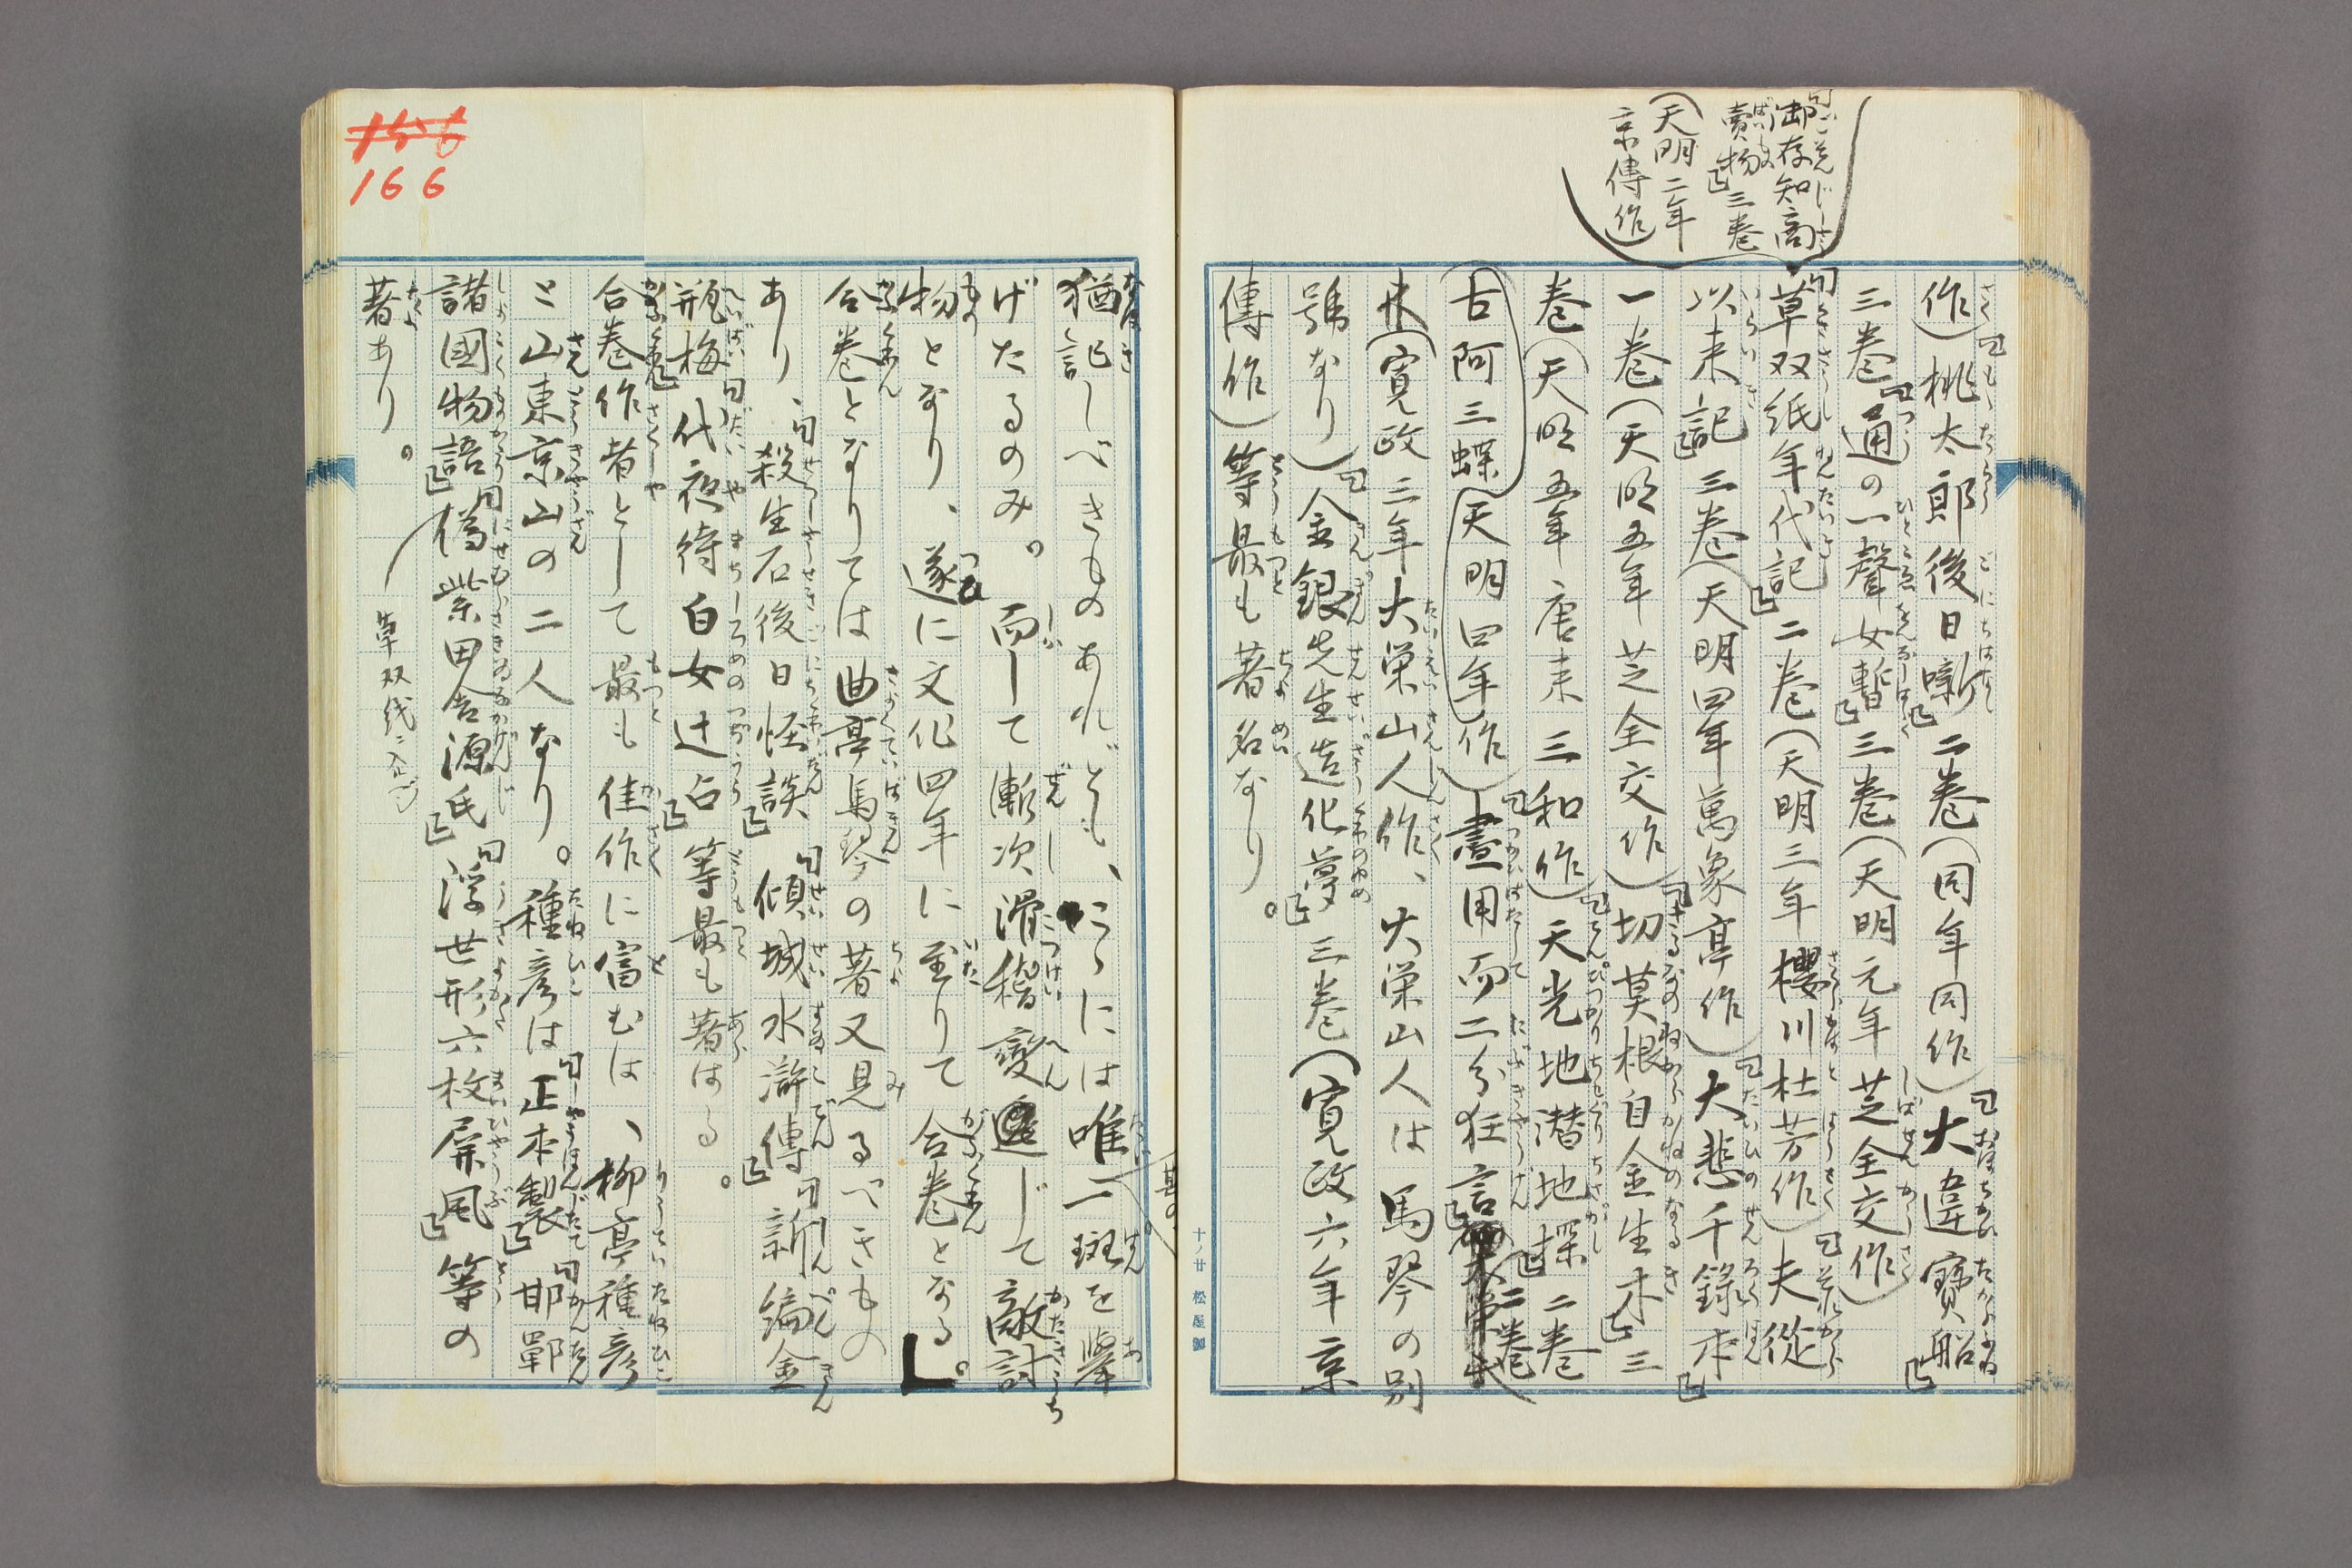 御存知商
賣物』三巻
(天明二年
京傳作)
作)『桃太郎後日噺』二巻(同年同作)『大違寶船』
三巻『通の一聲女暫』三巻(天明元年芝全交作)
『草双紙年代記』二巻(天明三年櫻川杜芳作)『夫從
以来記』三巻(天明四年萬象亭作)『大悲千錄本』
一巻(天明五年芝全交作)『切莫根自金生木』三
巻(天明五年唐来三和作)『天光地潜地探』二巻
古阿三蝶(天明四年作)『盡用而二分狂言』二巻
(寛政三年大栄山人作、大栄山人は馬琴の別
號なり)『金銀先生造化夢』三巻(寛政六年京
傳作)等最も著名なり。
猶記しべきものあれども、こゝには唯其の一斑を擧
げたるのみ。而して漸次滑稽變じて敵討
物となり、遂に文化四年に至りて合巻となる。
合巻となりては曲亭馬琴の著又見るべきもの
あり、『殺生石後日怪談』『傾城水滸傳』『新編金
瓶梅』『代夜待白女辻占』等最も著はる。
合巻作者として最も佳作に富むは、柳亭種彦
と山東京山の二人なり。種彦は『正本製』『邯鄲
諸國物語』『偽紫田舎源氏』『浮世形六枚屏風』等の
著あり。
166
十ノ廿 松屋製